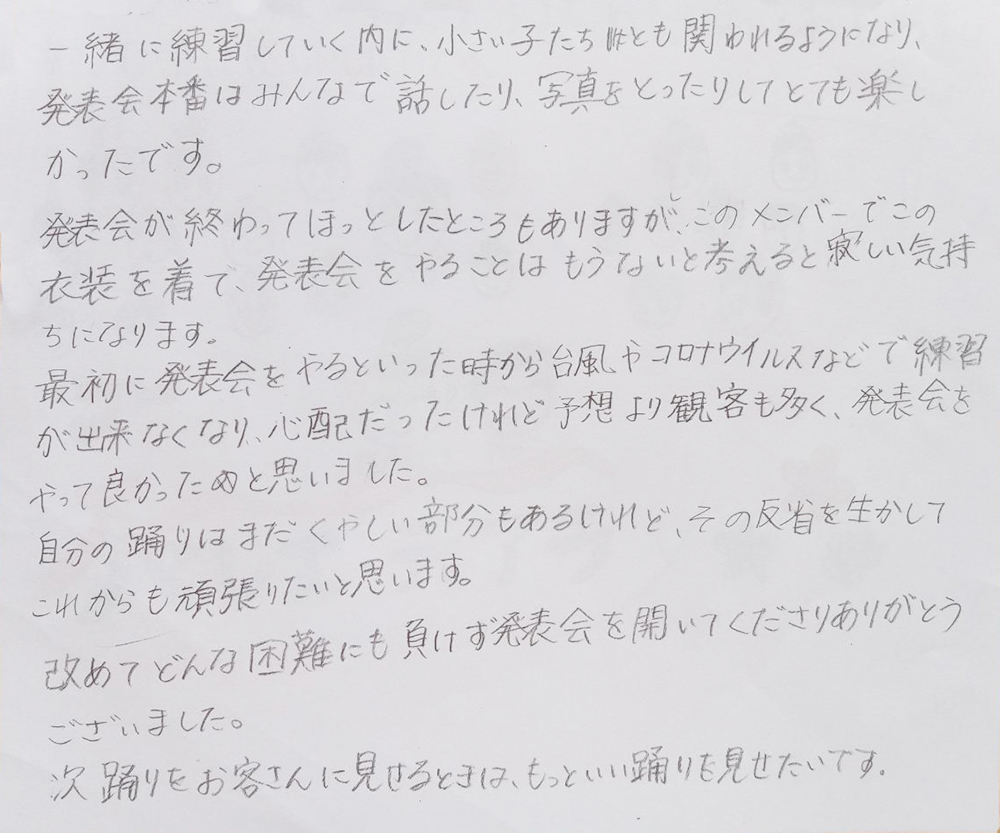 一緒に練習していく内に、小さい子たちとも関われるようになり、
発表会本番はみんなで話したり、写真をとったりしてとても楽し
かったです。
発表会が終わってほっとしたところもありますが、このメンバーでこの
衣装を着て、発表会をやることはもうないと考えると寂しい気持
ちになります。
最初に発表会をやるといった時から台風やコロナウイルスなどで練習
が出来なくなり、心配だったけれど予想より観客も多く、発表会を
やって良かったなと思いました。
自分の踊りはまだくやしい部分もあるけれど、その反省を生かして
これからも頑張りたいと思います。
改めてどんな困難にも負けず発表会を開いてくださりありがとう
ございました。
次踊りをお客さんに見せるときは、もっといい踊りを見せたいです。